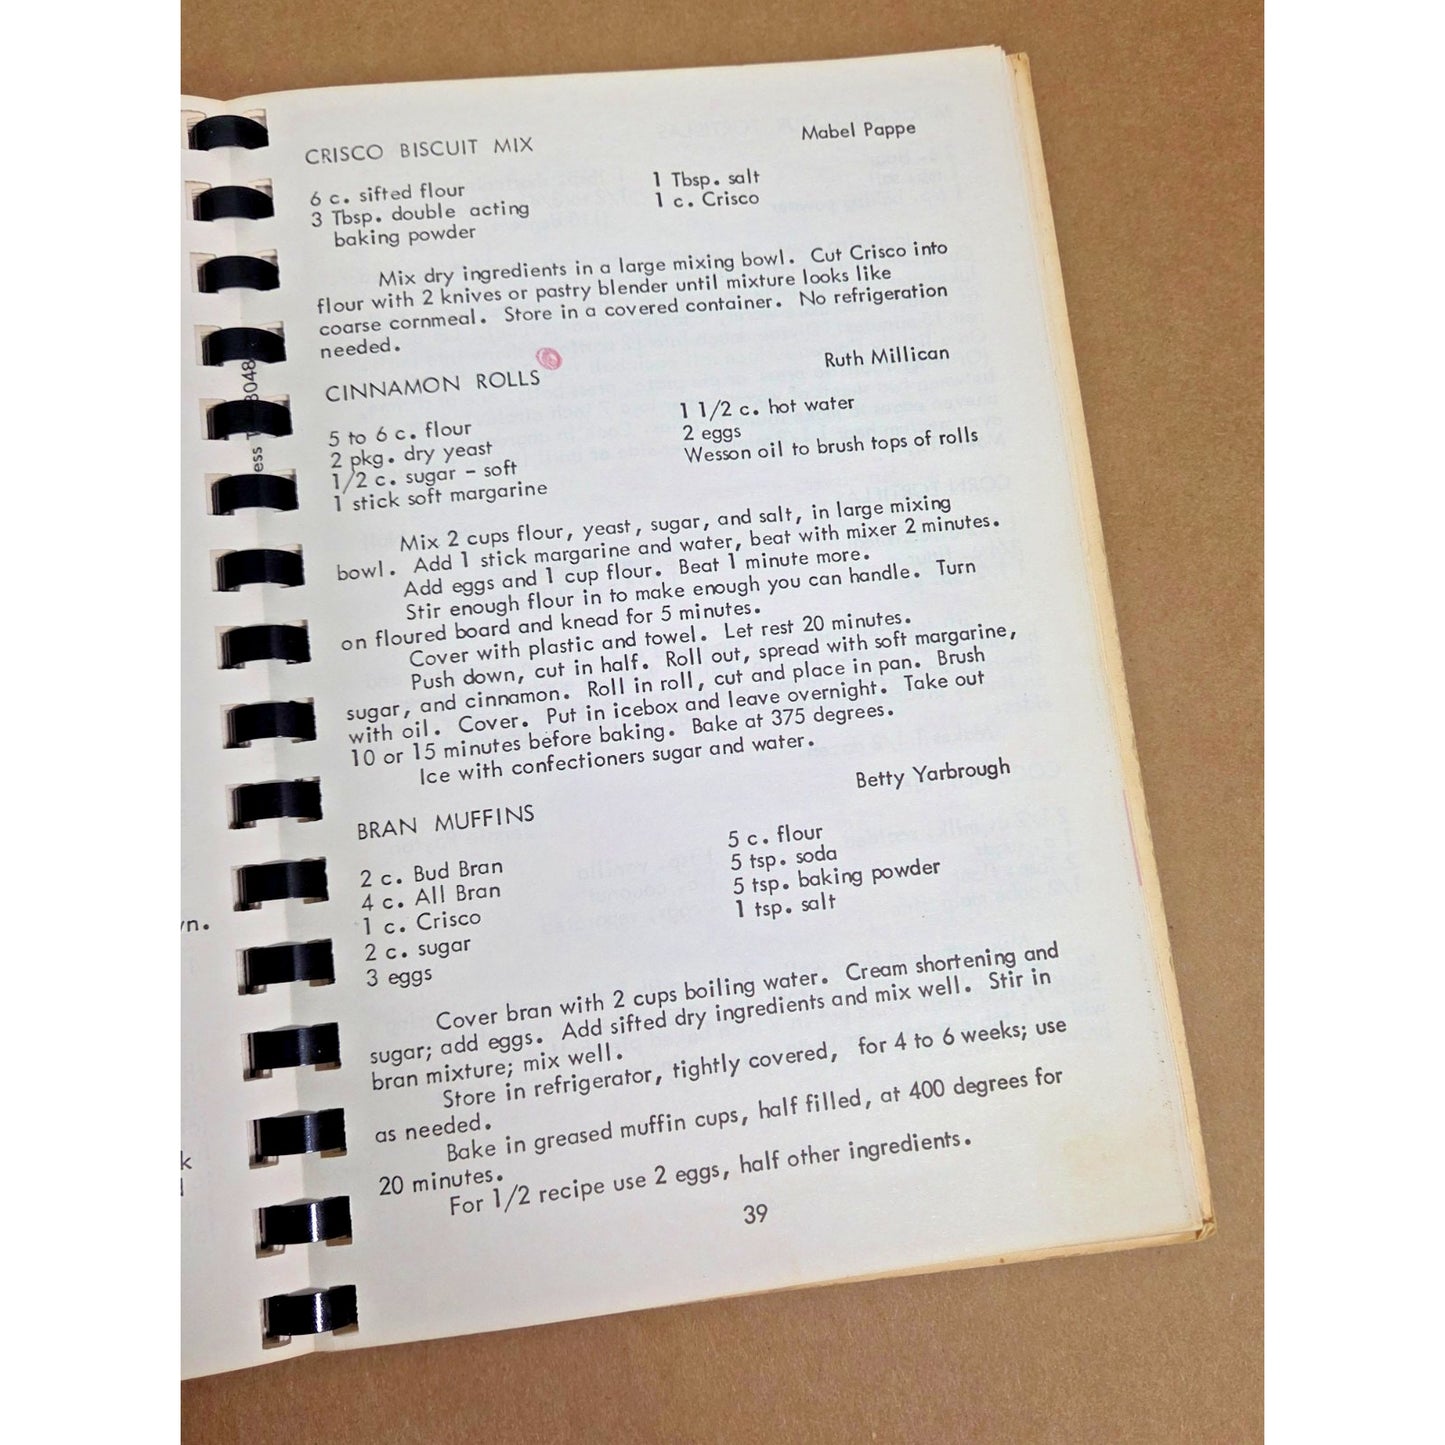 CRISCO BISCUIT MIX
Mabel Pappe
6 c. sifted flour
3 Tbsp. double acting
baking powder
1 Tbsp. salt
1 c. Crisco
Mix dry ingredients in a large mixing bowl. Cut Crisco into
flour with 2 knives or pastry blender until mixture looks like
coarse cornmeal. Store in a covered container. No refrigeration
needed.
CINNAMON ROLLS
Ruth Millican
5 to 6 c. flour
2 pkg. dry yeast
1/2 c. sugar - soft
1 stick soft margarine
1 1/2 c. hot water
2 eggs
Wesson oil to brush tops of rolls
Mix 2 cups flour, yeast, sugar, and salt, in large mixing
bowl. Add 1 stick margarine and water, beat with mixer 2 minutes.
Add eggs and 1 cup flour. Beat 1 minute more.
Stir enough flour in to make enough you can handle. Turn
on floured board and knead for 5 minutes.
Cover with plastic and towel. Let rest 20 minutes.
Push down, cut in half. Roll out, spread with soft margarine,
sugar, and cinnamon. Roll in roll, cut and place in pan. Brush
with oil. Cover. Put in icebox and leave overnight. Take out
10 or 15 minutes before baking. Bake at 375 degrees.
Ice with confectioners sugar and water.
BRAN MUFFINS
Betty Yarbrough
2 c. Bud Bran
4 c. All Bran
1 c. Crisco
2 c. sugar
3 eggs
5 c. flour
5 tsp. soda
5 tsp. baking powder
1 tsp. salt
Cover bran with 2 cups boiling water. Cream shortening and
sugar; add eggs. Add sifted dry ingredients and mix well. Stir in
bran mixture; mix well.
Store in refrigerator, tightly covered, for 4 to 6 weeks; use
as needed.
Bake in greased muffin cups, half filled, at 400 degrees for
20 minutes.
For 1/2 recipe use 2 eggs, half other ingredients.
39